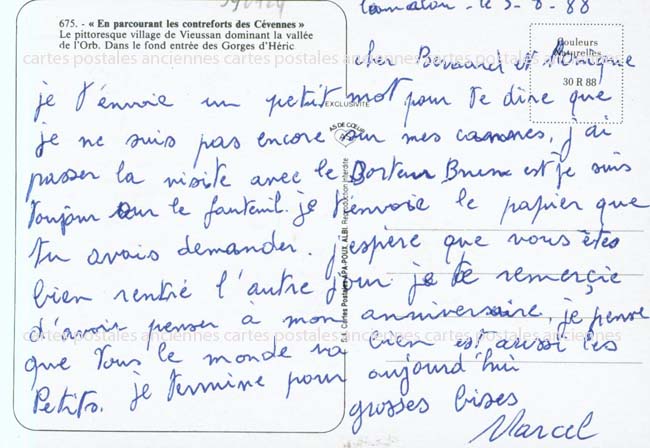 675. - « En parcourant les contreforts des Cévennes »
Le pittoresque village de Vieussan dominant la vallée
de l'Orb. Dans le fond entrée des Gorges d'Héric
le 3-8-88
Couleurs
Naturelles
30 R 88
cher Bernard et Monique
je t'énvoie un petit mot pour te dire que
je ne suis pas encore sur mes cannes, j'ai
passer la visite avec le Docteur est je suis
toujour sur le fauteuil. je t'énvoie le papier que
tu avais demander. j'espère que vous êtes
bien rentré l'autre jour je te remerçie
d'avoir penser à mon anniversaire, je pense
que tous le monde va bien est aussi les
Petits. je termine pour aujourd'hui
grosses bises
Marcel
EXCLUSIVITÉ
AS DE CŒUR
S.A. Cartes Postales APA-POUX, ALBI. Reproduction interdite
cartes postales anciennes cartes postales anciennes cartes postales anciennes
cartes postales anciennes cartes postales anciennes cartes postales anciennes